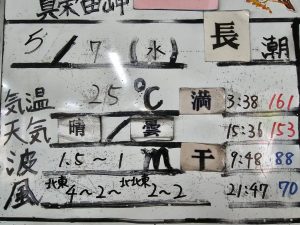 真栄田岬
5/7(水) 長潮
気温 25℃ 満 3:38 161
天気 晴/曇 15:36 153
波 1.5～1m 干 9:48 88
風 北東4～2～北北東2～2 21:47 70